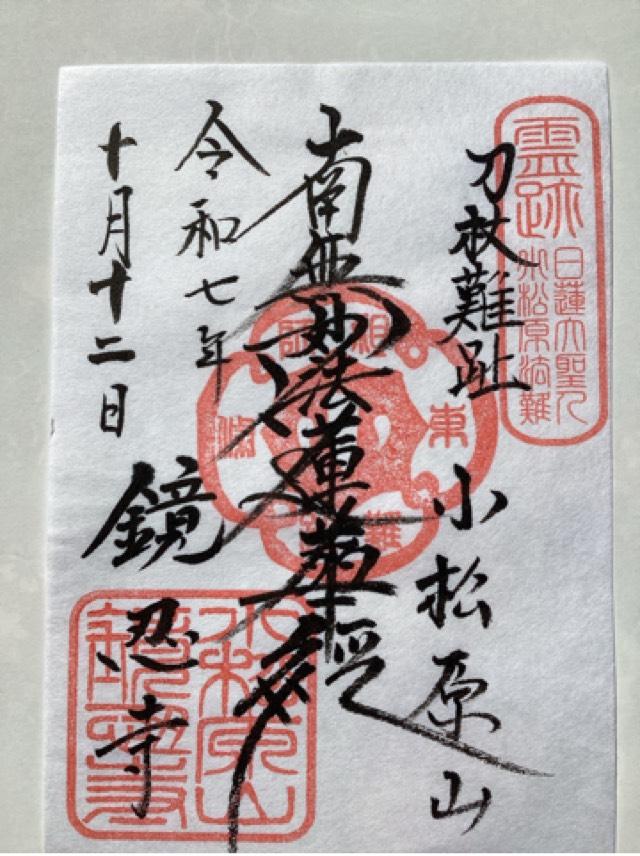 霊跡
日蓮大聖人
小松原法難
刀杖難趾
小松原山
南無妙法蓮華経
令和七年
十月十二日
鏡忍寺
小松原山
鏡忍寺